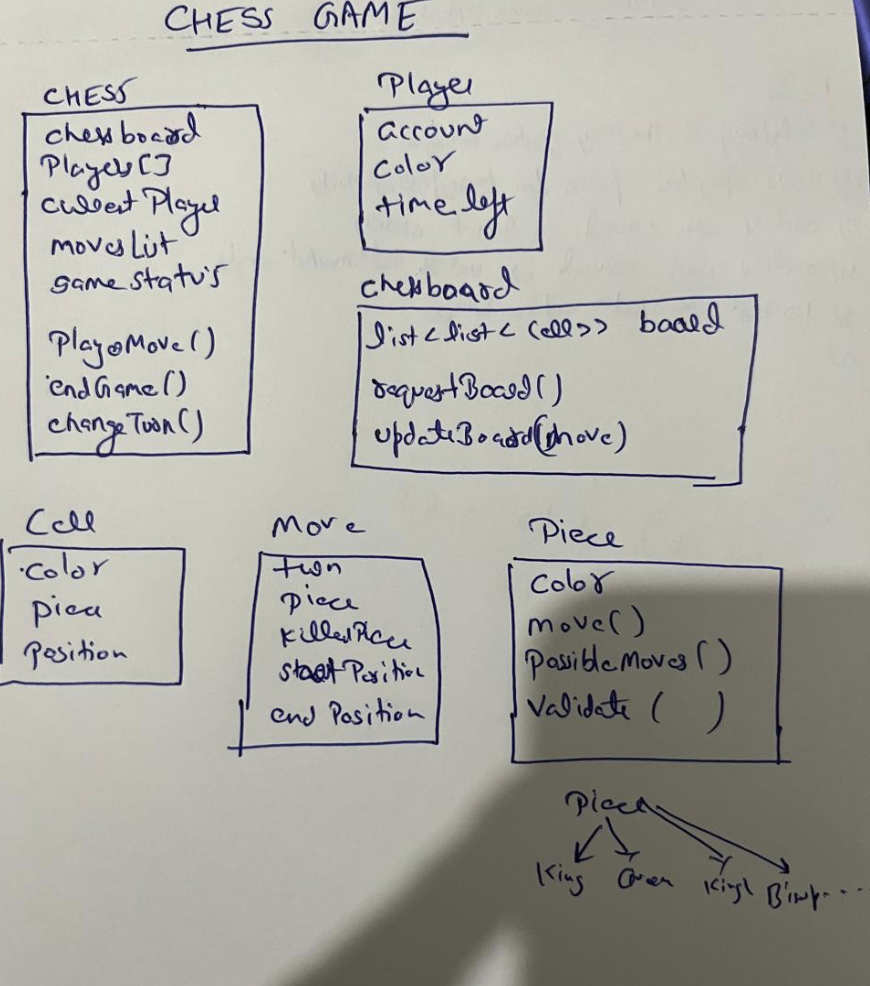 CHESS GAME
CHESS
chessboard
Players[]
current Player
movesList
game status
PlayerMove()
endGame()
changeTurn()
Player
account
color
time left
chessboard
list<list<Cell>> board
requestBoard()
updateBoard(move)
Cell
color
piece
Position
Move
turn
piece
killedPiece
start Position
end Position
Piece
color
move()
possibleMoves()
validate ( )
Piece
King Queen